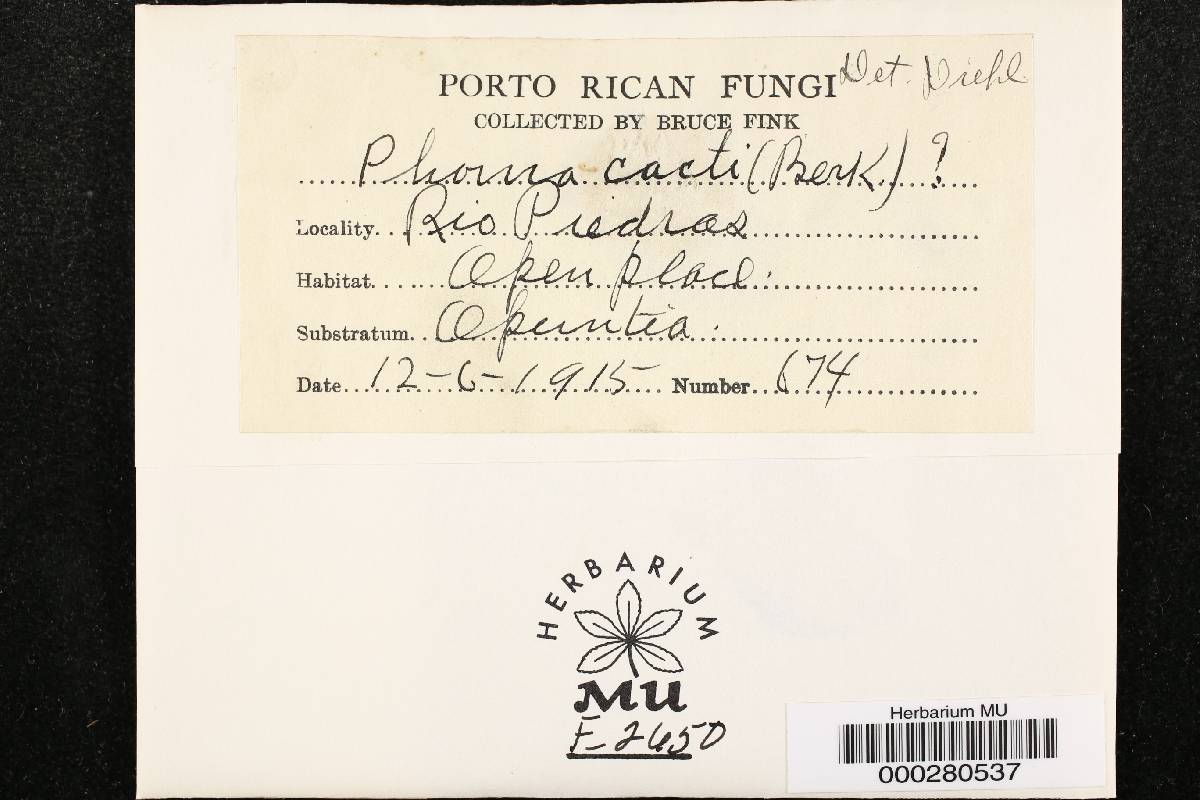 PORTO RICAN FUNGI Det. Diehl
COLLECTED BY BRUCE FINK
Phoma cacti (Berk) ?
Locality. Rio Piedras
Habitat. Open place.
Substratum. Opuntia.
Date 12-6-1915 Number 674
HERBARIUM
MU
F-2650
Herbarium MU
000280537